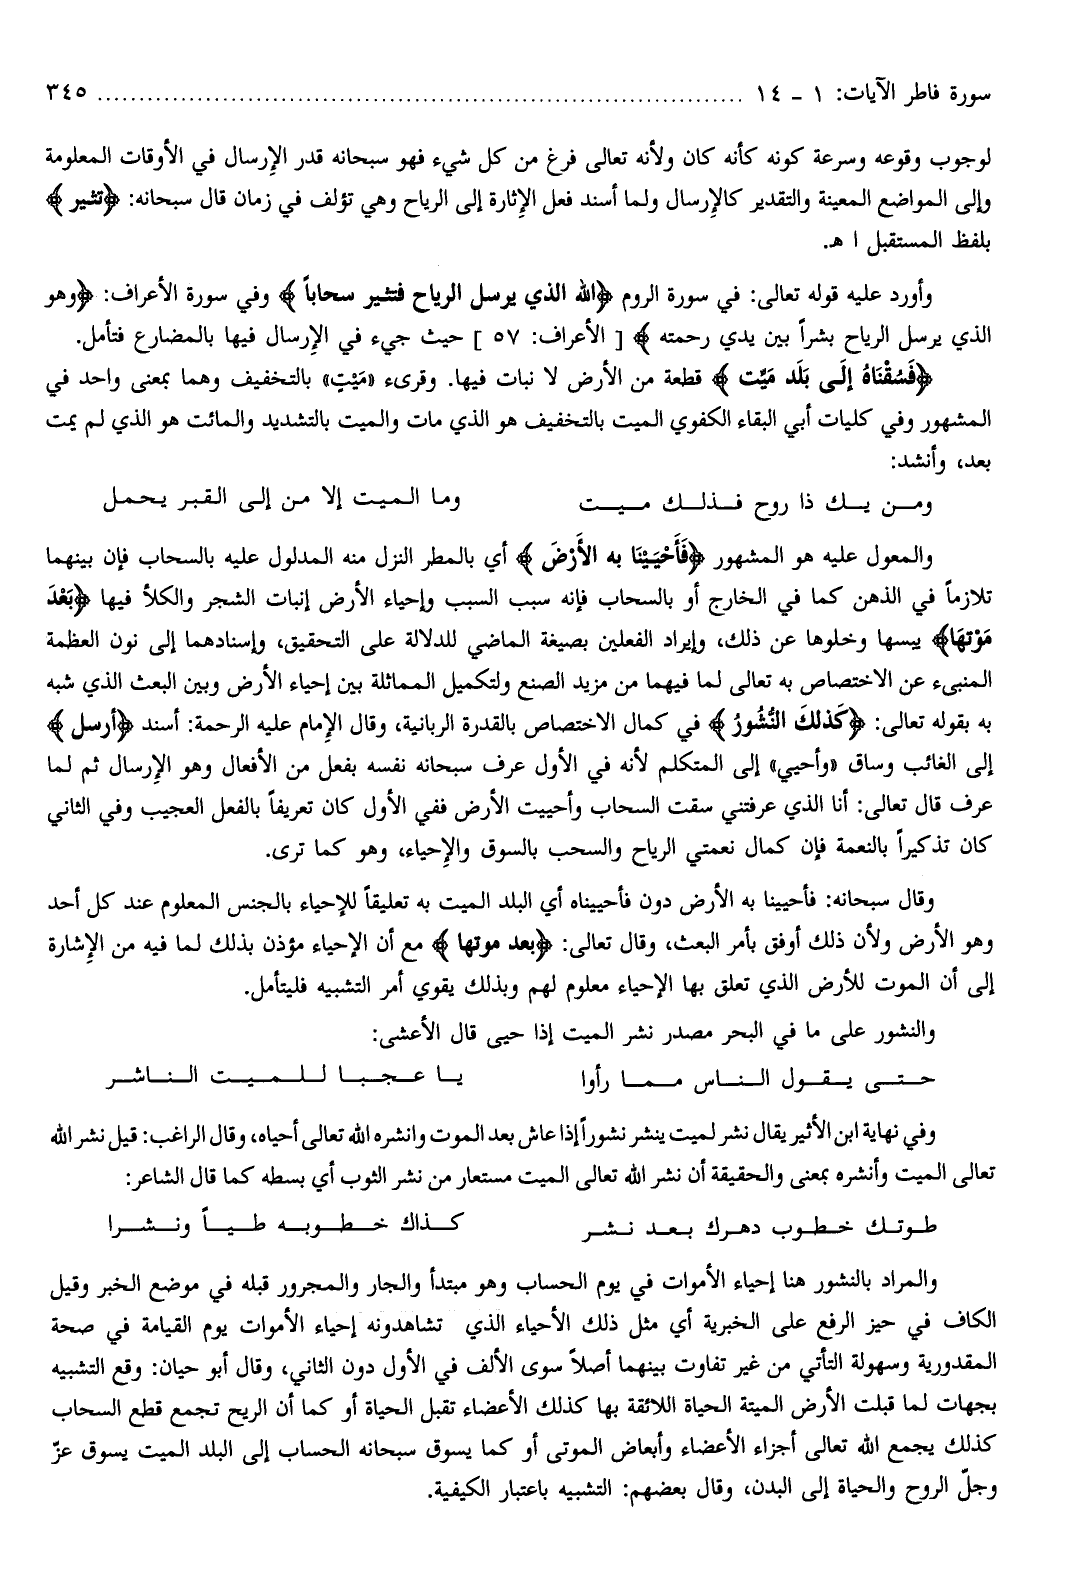 سورة فاطر الآيات: ١ - ١٤ ................................................................................ ٣٤٥
لوجوب وقوعه وسرعة كونه كأنه كان ولأنه تعالى فرغ من كل شيء فهو سبحانه قدر الإرسال في الأوقات المعلومة
وإلى المواضع المعينة والتقدير كالإرسال ولما أسند فعل الإثارة إلى الرياح وهي تؤلف في زمان قال سبحانه: ﴿تثير﴾
بلفظ المستقبل ا هـ.
وأورد عليه قوله تعالى: في سورة الروم ﴿الله الذي يرسل الرياح فتثير سحاباً﴾ وفي سورة الأعراف: ﴿وهو
الذي يرسل الرياح بشراً بين يدي رحمته﴾ [ الأعراف: ٥٧ ] حيث جيء في الإرسال فيها بالمضارع فتأمل.
﴿فَسُقْنَاهُ إلَى بَلَد مَيِّت﴾ قطعة من الأرض لا نبات فيها. وقرىء «مَيْتٍ» بالتخفيف وهما بمعنى واحد في
المشهور وفي كليات أبي البقاء الكفوي الميت بالتخفيف هو الذي مات والميت بالتشديد والمائت هو الذي لم يمت
بعد، وأنشد:
ومن يك ذا روح فذلك ميت وما الميت إلا من إلى القبر يحمل
والمعول عليه هو المشهور ﴿فَأَحْيَيْنَا به الأَرْضَ﴾ أي بالمطر النزل منه المدلول عليه بالسحاب فإن بينهما
تلازماً في الذهن كما في الخارج أو بالسحاب فإنه سبب السبب وإحياء الأرض إنبات الشجر والكلأ فيها ﴿بَعْدَ
مَوْتهَا﴾ يبسها وخلوها عن ذلك، وإيراد الفعلين بصيغة الماضي للدلالة على التحقيق، وإسنادهما إلى نون العظمة
المنبىء عن الاختصاص به تعالى لما فيهما من مزيد الصنع ولتكميل المماثلة بين إحياء الأرض وبين البعث الذي شبه
به بقوله تعالى: ﴿كَذلكَ النُّشُورُ﴾ في كمال الاختصاص بالقدرة الربانية، وقال الإمام عليه الرحمة: أسند ﴿أرسل﴾
إلى الغائب وساق «وأحيي» إلى المتكلم لأنه في الأول عرف سبحانه نفسه بفعل من الأفعال وهو الإرسال ثم لما
عرف قال تعالى: أنا الذي عرفتني سقت السحاب وأحييت الأرض ففي الأول كان تعريفاً بالفعل العجيب وفي الثاني
كان تذكيراً بالنعمة فإن كمال نعمتي الرياح والسحب بالسوق والإحياء، وهو كما ترى.
وقال سبحانه: فأحيينا به الأرض دون فأحييناه أي البلد الميت به تعليقاً للإحياء بالجنس المعلوم عند كل أحد
وهو الأرض ولأن ذلك أوفق بأمر البعث، وقال تعالى: ﴿بعد موتها﴾ مع أن الإحياء مؤذن بذلك لما فيه من الإشارة
إلى أن الموت للأرض الذي تعلق بها الإحياء معلوم لهم وبذلك يقوي أمر التشبيه فليتأمل.
والنشور على ما في البحر مصدر نشر الميت إذا حيى قال الأعشى:
حتى يقول الناس مما رأوا يا عجبا للميت الناشر
وفي نهاية ابن الأثير يقال نشر لميت ينشر نشوراً إذا عاش بعد الموت وانشره الله تعالى أحياه، وقال الراغب: قيل نشر الله
تعالى الميت وأنشره بمعنى والحقيقة أن نشر الله تعالى الميت مستعار من نشر الثوب أي بسطه كما قال الشاعر:
طوتك خطوب دهرك بعد نشر كذاك خطوبه طياً ونشرا
والمراد بالنشور هنا إحياء الأموات في يوم الحساب وهو مبتدأ والجار والمجرور قبله في موضع الخبر وقيل
الكاف في حيز الرفع على الخبرية أي مثل ذلك الأحياء الذي تشاهدونه إحياء الأموات يوم القيامة في صحة
المقدورية وسهولة التأتي من غير تفاوت بينهما أصلاً سوى الألف في الأول دون الثاني، وقال أبو حيان: وقع التشبيه
بجهات لما قبلت الأرض الميتة الحياة اللائقة بها كذلك الأعضاء تقبل الحياة أو كما أن الريح تجمع قطع السحاب
كذلك يجمع الله تعالى أجزاء الأعضاء وأبعاض الموتى أو كما يسوق سبحانه الحساب إلى البلد الميت يسوق عزّ
وجلّ الروح والحياة إلى البدن، وقال بعضهم: التشبيه باعتبار الكيفية.